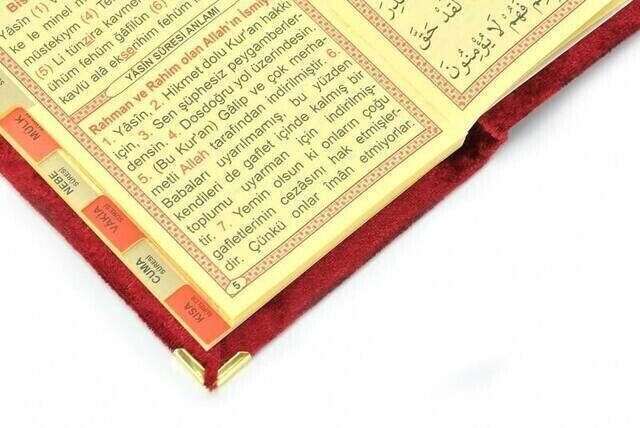 Bis
Yâsîn (1) V
ke le minel m
müstekıym (4) Ten
(5) Li tünzira kavmen
ühüm fehüm gâfilûn (6)
kavlü alâ ekserihim fehüm
YASİN SÛRESİ ANLAMI
Rahman ve Rahim olan Allah'ın ismiy
1. Yâsîn, 2. Hikmet dolu Kur'an hakkı
için, 3. Sen şüphesiz peygamberler-
densin. 4. Dosdoğru yol üzerindesin.
5. (Bu Kur'an) Gâlip ve çok merha-
metli Allah tarafından indirilmiştir. 6.
Babaları uyarılmamış, bu yüzden
kendileri de gaflet içinde kalmış bir
toplumu uyarman için indirilmiş-
tir. 7. Yemin olsun ki onların çoğu
gafletlerinin cezasını hak etmişler-
dir. Çünkü onlar îmân etmiyorlar.
5
لَقَدْ حَقَّ
فَهُمْ لَا يُؤْمِنُونَ
MÜLK
NEBE
SÛRESİ
VÂKIA
SÛRESİ
CUMA
SÛRESİ
KISA
SÛRELER